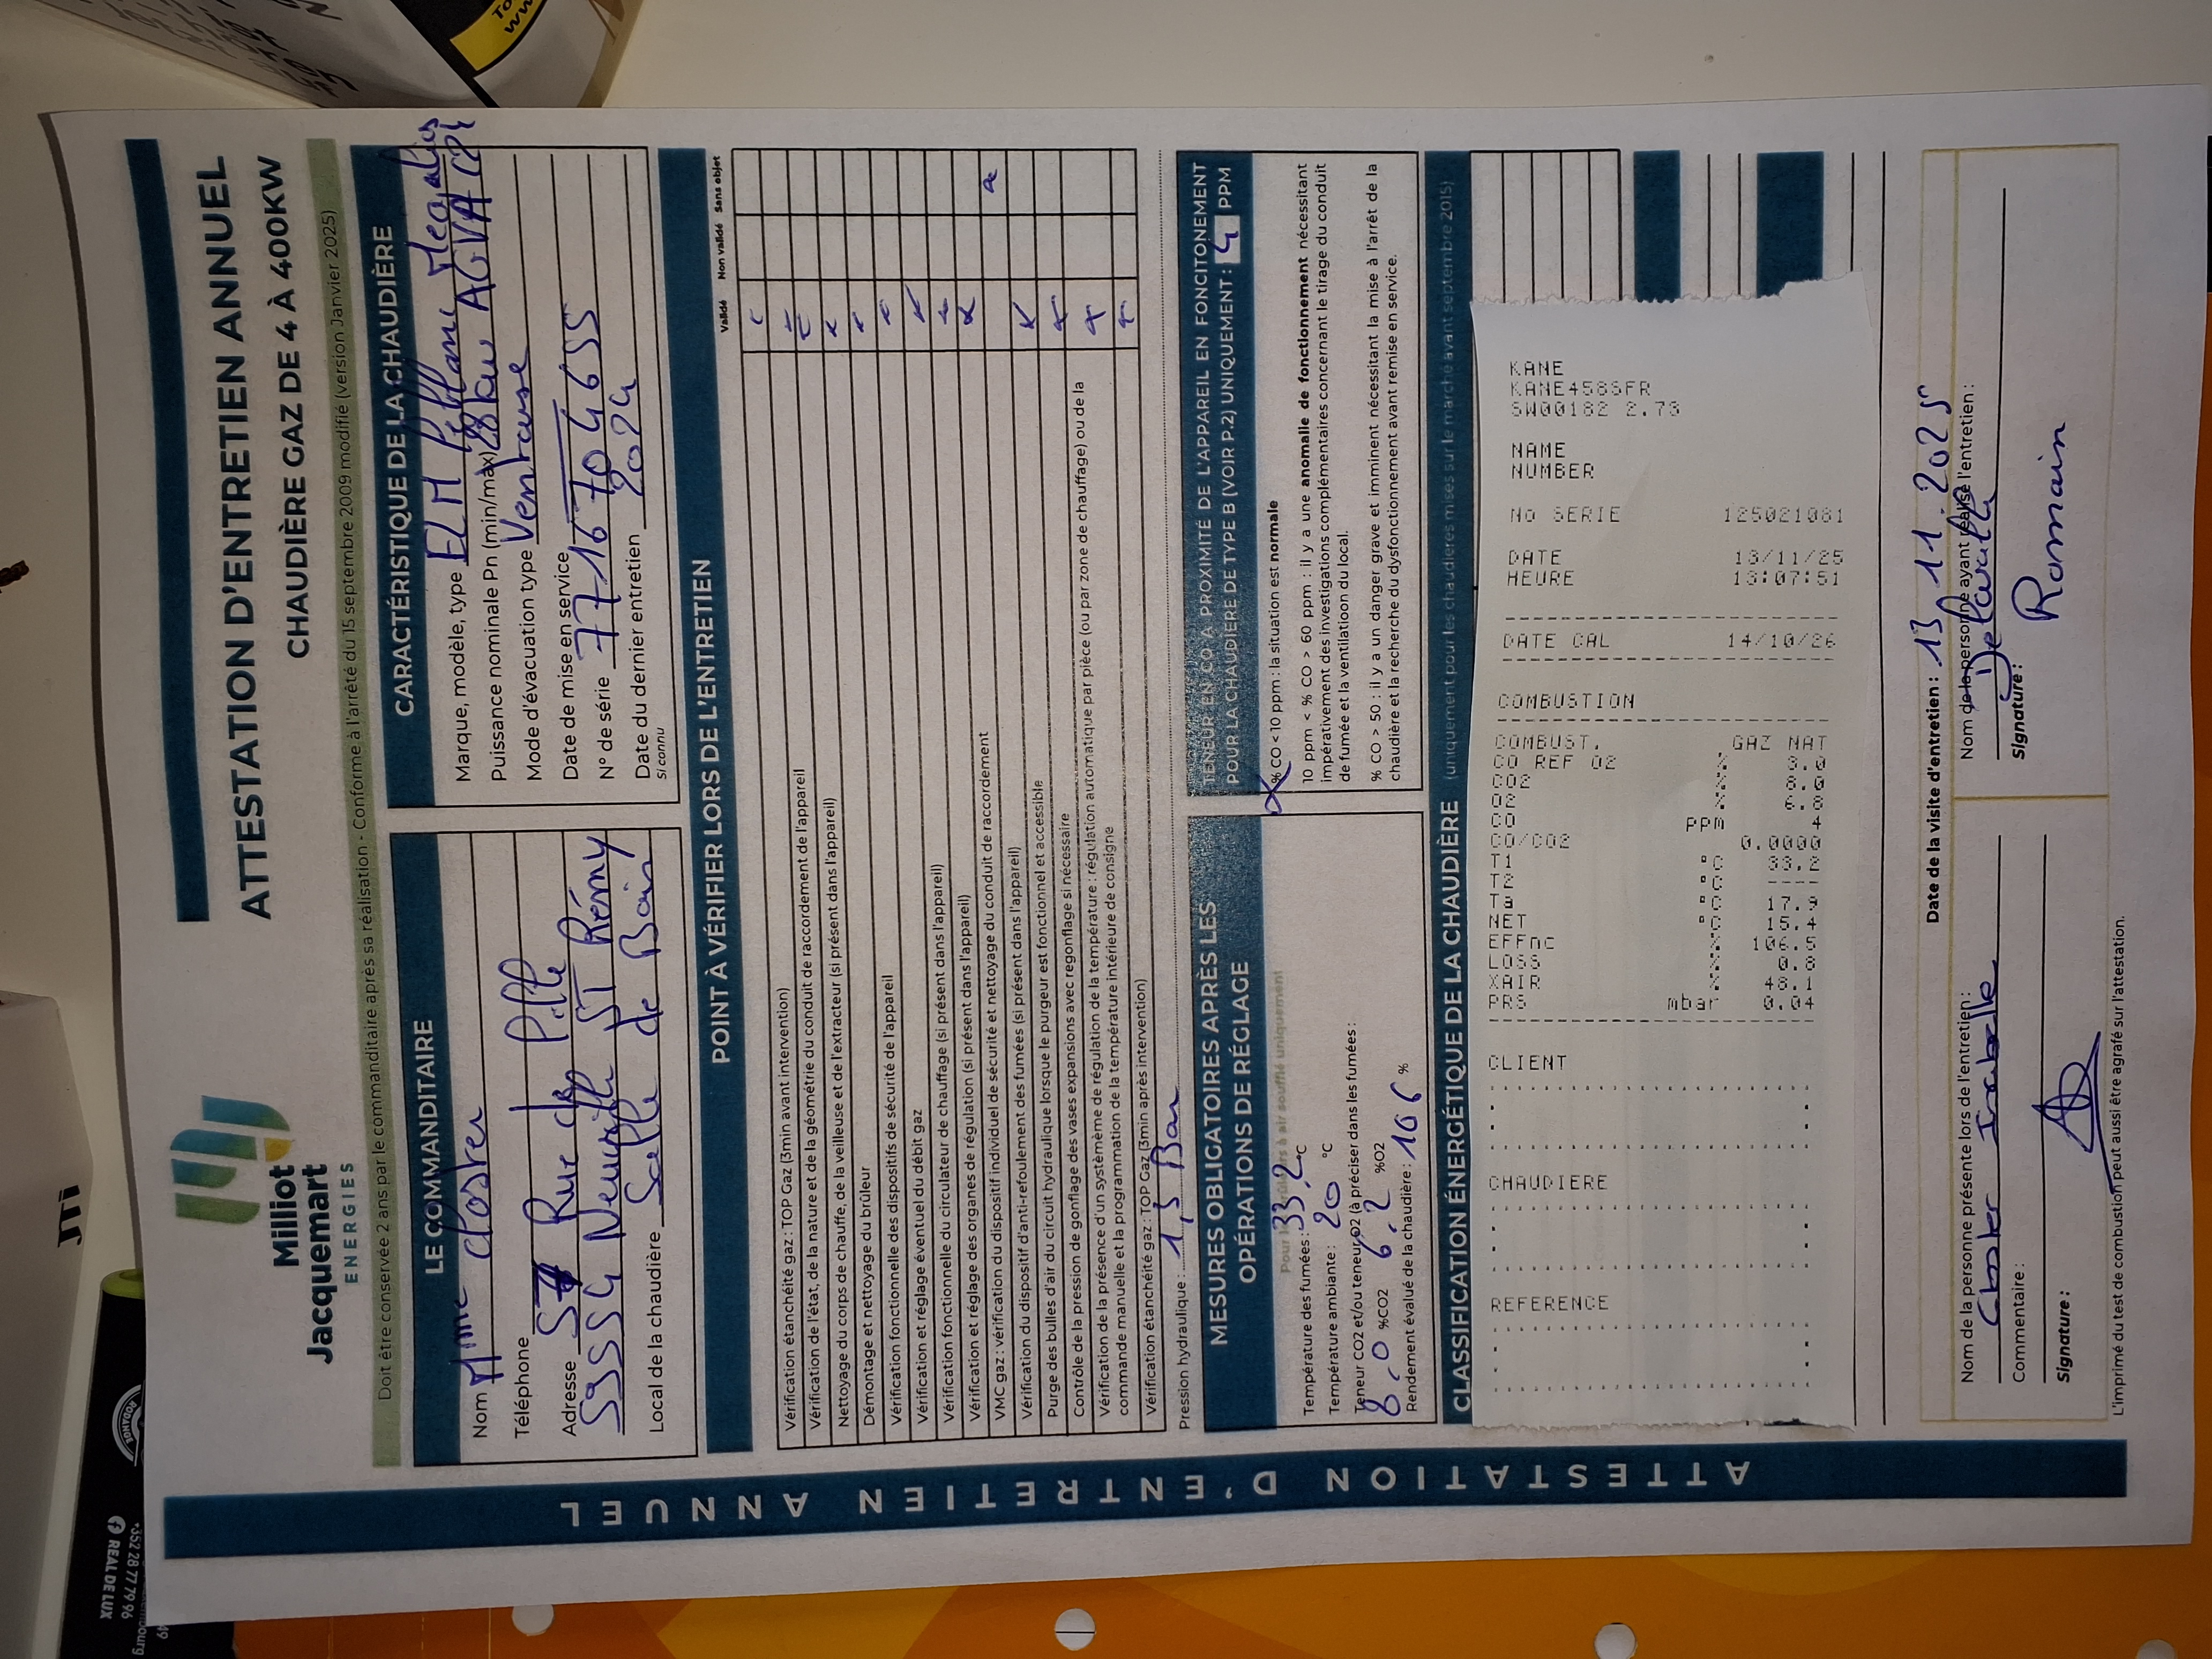 Milliot
Jacquemart
ENERGIES
ATTESTATION D'ENTRETIEN ANNUEL
CHAUDIÈRE GAZ DE 4 À 400KW
Doit être conservée 2 ans par le commanditaire après sa réalisation - Conforme à l'arrêté du 15 septembre 2009 modifié (version Janvier 2025)
LE COMMANDITAIRE
Nom Mme
Téléphone
Adresse Rue de
59554 Neuville ST Rémy
Local de la chaudière Salle de Bain
CARACTÉRISTIQUE DE LA CHAUDIÈRE
Marque, modèle, type ELM leblanc Megalis
Puissance nominale Pn (min/max) 28kw
Mode d'évacuation type Ventouse
Date de mise en service
N° de série 7716704655
Date du dernier entretien 2024
si connu
POINT À VÉRIFIER LORS DE L'ENTRETIEN
Validé Non validé Sans objet
Vérification étanchéité gaz : TOP Gaz (3min avant intervention)
Vérification de l'état, de la nature et de la géométrie du conduit de raccordement de l'appareil
Nettoyage du corps de chauffe, de la veilleuse et de l'extracteur (si présent dans l'appareil)
Démontage et nettoyage du brûleur
Vérification fonctionnelle des dispositifs de sécurité de l'appareil
Vérification et réglage éventuel du débit gaz
Vérification fonctionnelle du circulateur de chauffage (si présent dans l'appareil)
Vérification et réglage des organes de régulation (si présent dans l'appareil)
VMC gaz : vérification du dispositif individuel de sécurité et nettoyage du conduit de raccordement
Vérification du dispositif d'anti-refoulement des fumées (si présent dans l'appareil)
Purge des bulles d'air du circuit hydraulique lorsque le purgeur est fonctionnel et accessible
Contrôle de la pression de gonflage des vases expansions avec regonflage si nécessaire
Vérification de la présence d'un systèmème de régulation de la température : régulation automatique par pièce (ou par zone de chauffage) ou de la
commande manuelle et la programmation de la température intérieure de consigne
Vérification étanchéité gaz : TOP Gaz (3min après intervention)
Pression hydraulique : 1,5 Bar
MESURES OBLIGATOIRES APRÈS LES
OPÉRATIONS DE RÉGLAGE
Pour les brûleurs à air soufflé uniquement
Température des fumées : 33,2 °C
Température ambiante : 20 °C
Teneur CO2 et/ou teneur O2 (à préciser dans les fumées :
8.0 %CO2 6.2 %O2
Rendement évalué de la chaudière : 106 %
TENEUR EN CO À PROXIMITÉ DE L'APPAREIL EN FONCITONEMENT
POUR LA CHAUDIÈRE DE TYPE B (VOIR P.2) UNIQUEMENT : 4 PPM
% CO < 10 ppm : la situation est normale
10 ppm < % CO > 60 ppm : il y a une anomalie de fonctionnement nécessitant
impérativement des investigations complémentaires concernant le tirage du conduit
de fumée et la ventilation du local.
% CO > 50 : il y a un danger grave et imminent nécessitant la mise à l'arrêt de la
chaudière et la recherche du dysfonctionnement avant remise en service.
CLASSIFICATION ÉNERGÉTIQUE DE LA CHAUDIÈRE (uniquement pour les chaudières mises sur le marché avant septembre 2015)
KANE
KANE458SFR
SW00182 2.73
NAME
NUMBER
No SERIE 125021081
DATE 13/11/25
HEURE 13:07:51
DATE CAL 14/10/26
COMBUSTION
COMBUST. GAZ NAT
CO REF O2 % 3.0
CO2 % 8.0
O2 %
CO ppm 4
CO/CO2 0.0000
T1 °C 33.2
T2 °C ----
Ta °C 17.9
NET °C 15.4
EFFnc % 106.5
LOSS %
XAIR % 48.1
PRS mbar 0.04
CLIENT
CHAUDIERE
REFERENCE
Date de la visite d'entretien : 13.11.2025
Nom de la personne présente lors de l'entretien :
Commentaire :
Signature :
Nom de la personne ayant réalisé l'entretien :
Signature :
Romain
L'imprimé du test de combustion peut aussi être agrafé sur l'attestation.
ATTESTATION D'ENTRETIEN ANNUEL
JTi
+352 28 77 79 96
REAL DE LUX